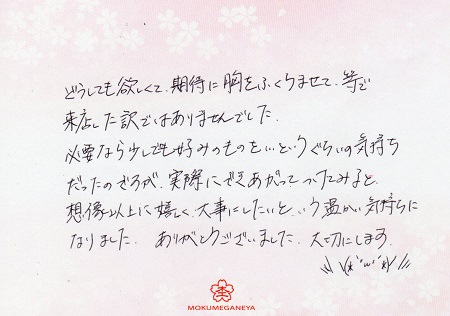 どうしても欲しくて、期待に胸をふくらませて、等で
来店した訳ではありませんでした。
必要なら少しでも好みのものを…というぐらいの気持ち
だったのですが、実際にできあがってつけてみると、
想像以上に嬉しく、大事にしたいという温かい気持ちに
なりました。ありがとうございました。大切にします。
MOKUMEGANEYA